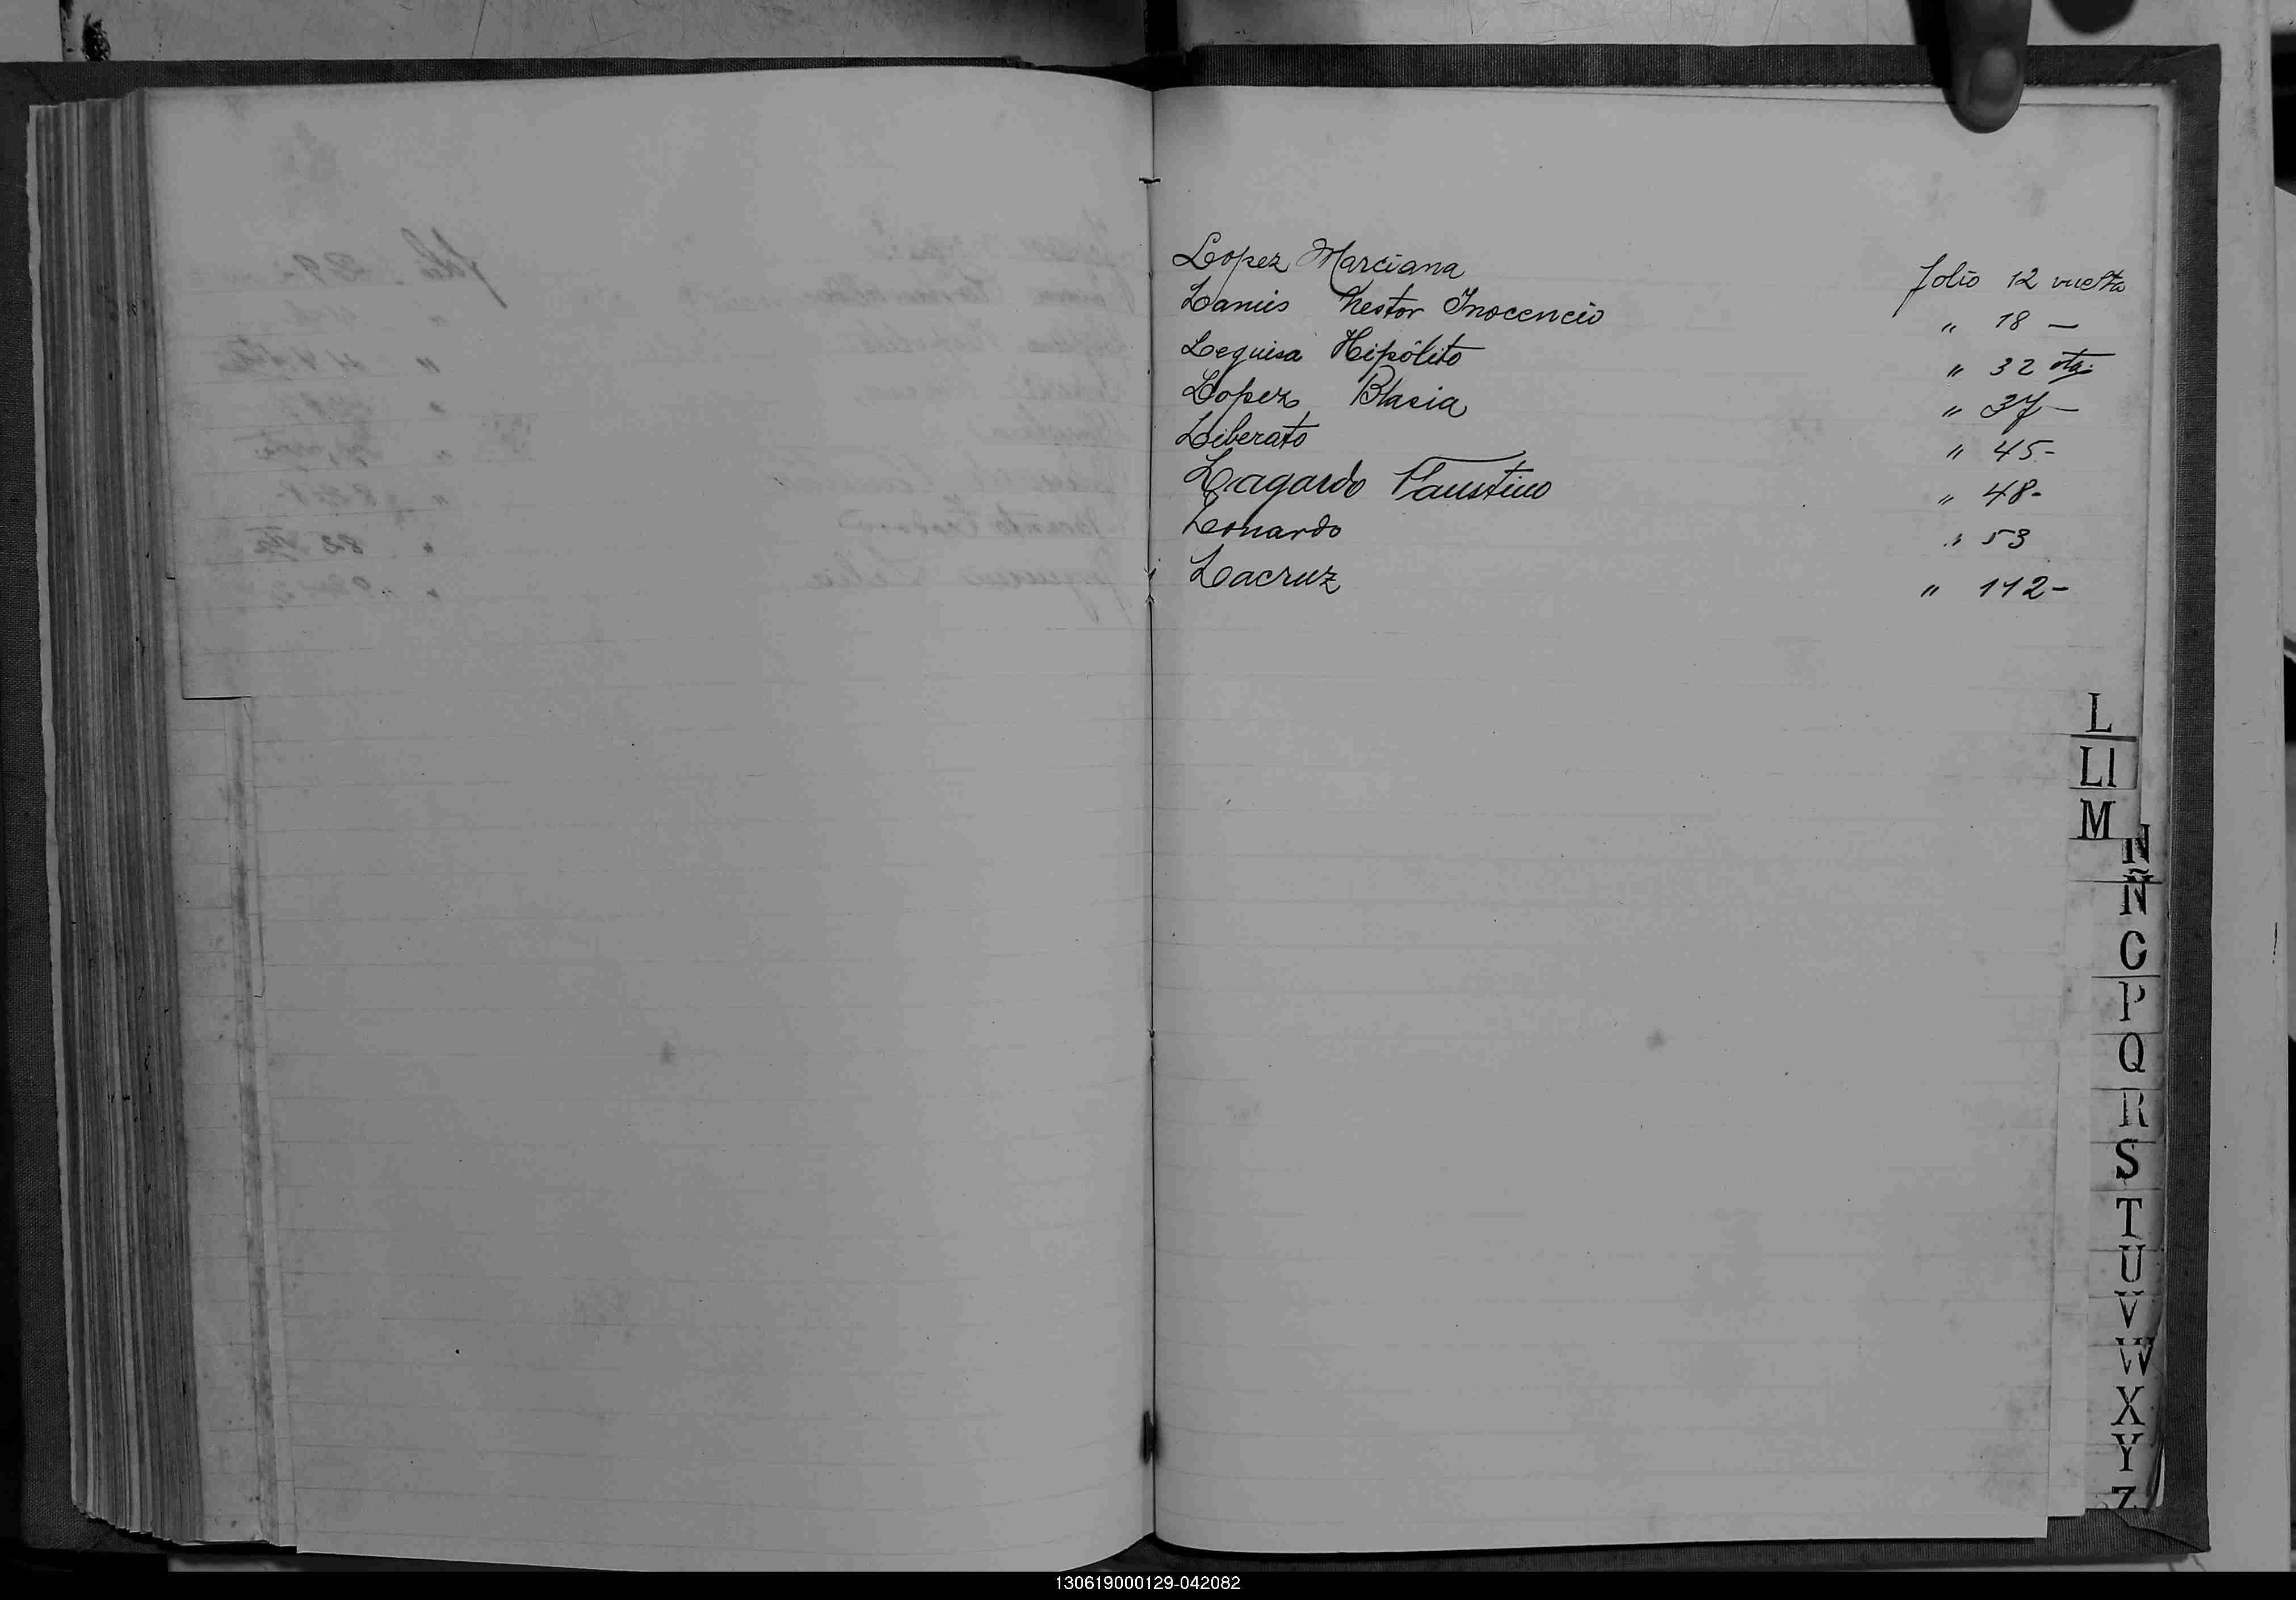 Lopez Marciana folio 12 vuelta
Lanús Nestor Inocencio " 18 —
Leguisa Hipólito " 32 vta.
Lopez Blasia " 37 —
Liberato " 45 -
Lagardo Faustino " 48 -
Leonardo " 53
Lacruz " 112 -
L
Ll
M
N
Ñ
O
P
Q
R
S
T
U
V
W
X
Y
Z
130619000129-042082